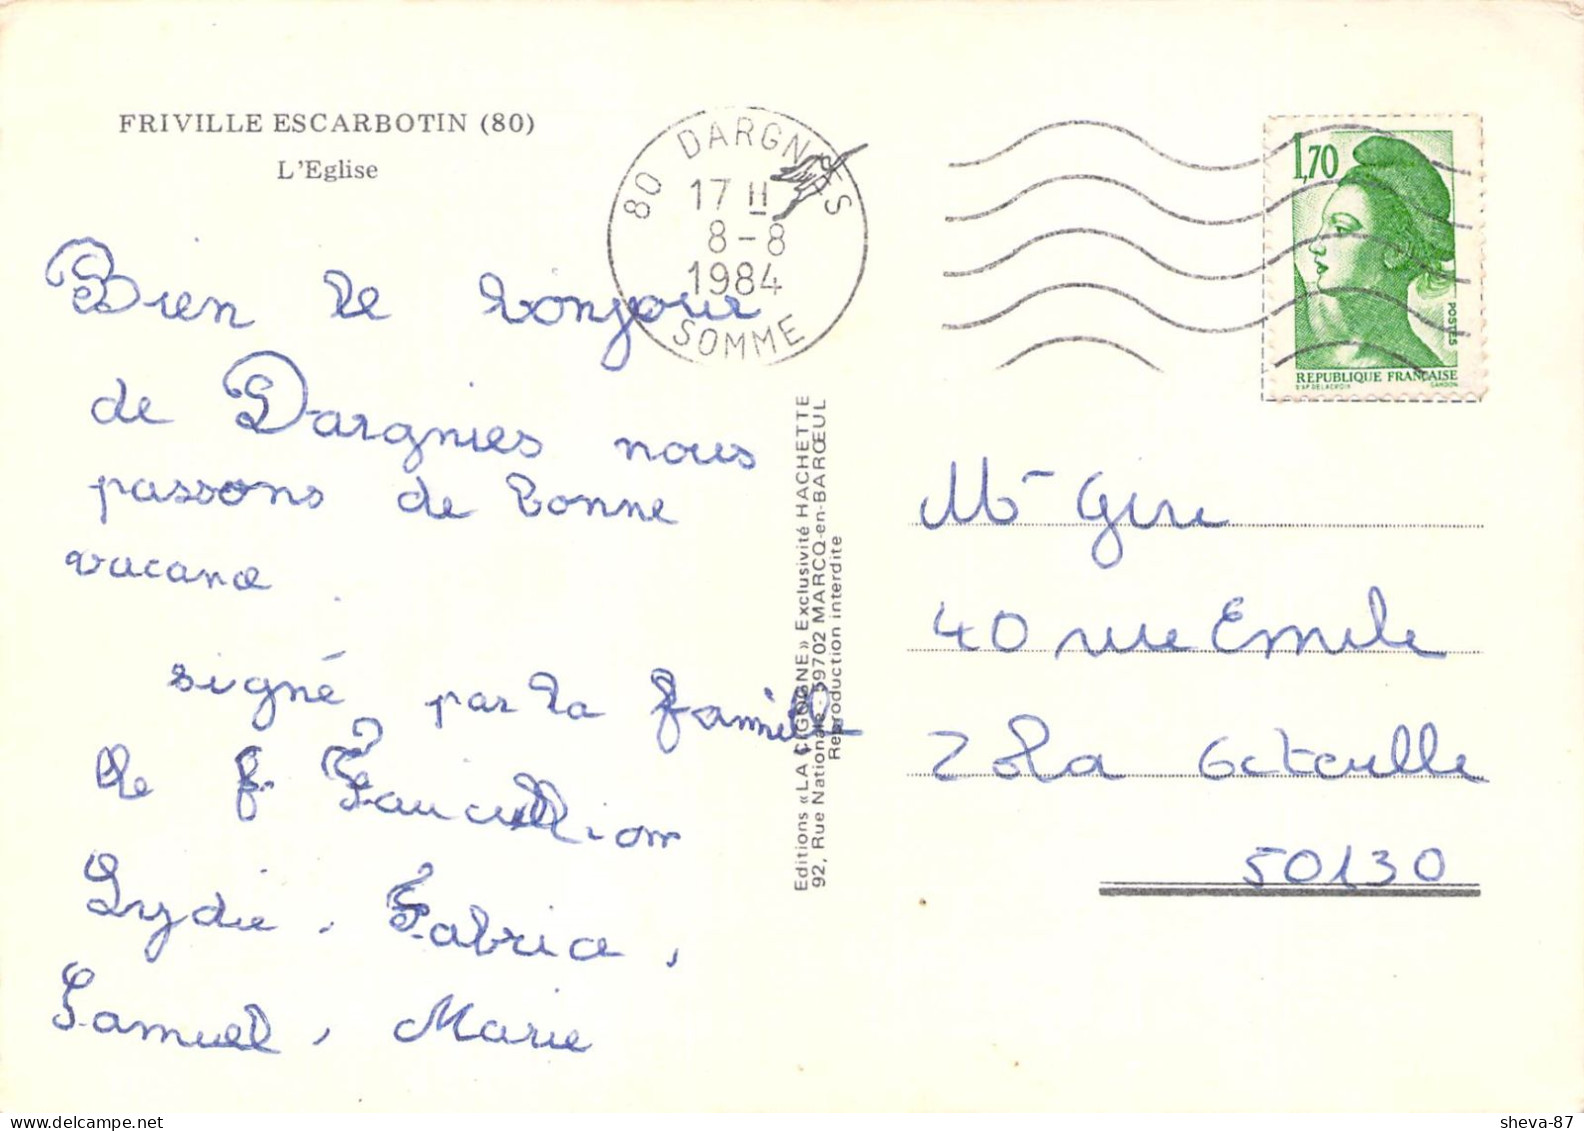 FRIVILLE ESCARBOTIN (80)
L'Eglise
80 DARGNIES
17 H
8-8
1984
SOMME
1,70
POSTES
REPUBLIQUE FRANÇAISE
D'AP. DELACROIX GANDON
Bien le bonjour
de Dargnies nous
passons de bonne
vacance
signé par la famille
de f. Faucillion
Lydie, Fabrice,
Samuel, Marie
Editions «LA CIGOGNE» Exclusivité HACHETTE
92, Rue Nationale 59702 MARCQ-en-BARŒUL
Reproduction interdite
Mr Gire
40 rue Emile
Zola Octeville
50130
sheva-87